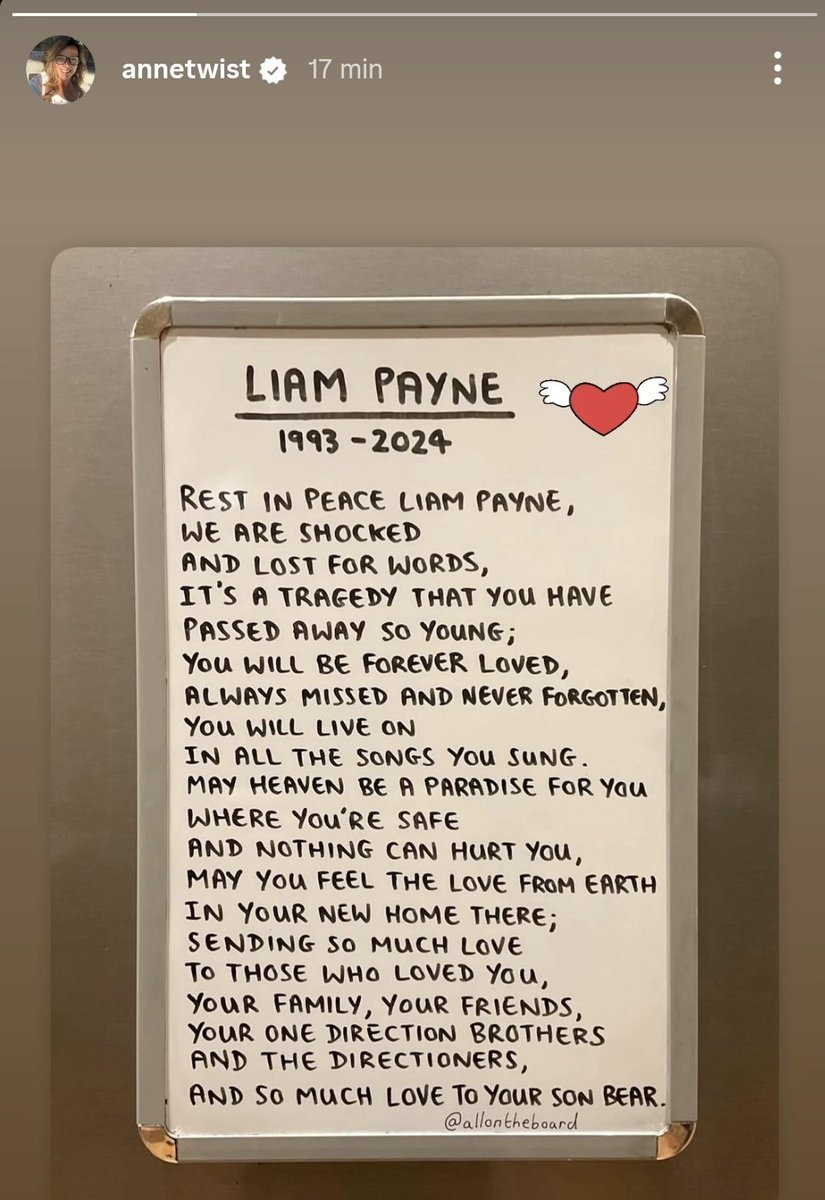 annetwist 17 min
LIAM PAYNE
1993-2024
REST IN PEACE LIAM PAYNE,
WE ARE SHOCKED
AND LOST FOR WORDS,
IT'S A TRAGEDY THAT YOU HAVE
PASSED AWAY SO YOUNG;
YOU WILL BE FOREVER LOVED,
ALWAYS MISSED AND NEVER FORGOTTEN,
YOU WILL LIVE ON
IN ALL THE SONGS YOU SUNG.
MAY HEAVEN BE A PARADISE FOR YOU
WHERE YOU'RE SAFE
AND NOTHING CAN HURT YOU,
MAY YOU FEEL THE LOVE FROM EARTH
IN YOUR NEW HOME THERE;
SENDING SO MUCH LOVE
TO THOSE WHO LOVED YOU,
YOUR FAMILY, YOUR FRIENDS,
YOUR ONE DIRECTION BROTHERS
AND THE DIRECTIONERS,
AND SO MUCH LOVE TO YOUR SON BEAR.
@allontheboard